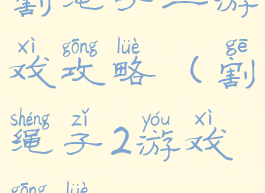 割绳子二游
xì gōng lüè gē
戏攻略（割
shéng zǐ yóu xì
绳子2游戏
gōng lüè